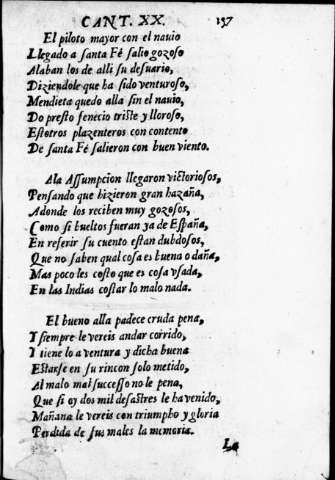 CANT. XX. 157
El piloto mayor con el nauio
Llegado a santa Fé salio gozoso
Alaban los de alli su desuario,
Diziendole que ha sido venturoso,
Mendieta quedo alla sin el nauio,
Do presto fenecio triste y lloroso,
Estotros plazenteros con contento
De santa Fé salieron con buen viento.
Ala Assumpcion llegaron victoriosos,
Pensando que hizieron gran hazaña,
Adonde los reciben muy gozosos,
Como si bueltos fueran ya de España,
En referir su cuento estan dubdosos,
Que no saben qual cosa es buena o daña,
Mas poco les costo que es cosa vsada,
En las Indias costar lo malo nada.
El bueno alla padece cruda pena,
Y siempre le vereis andar corrido,
Y tiene lo a ventura y dicha buena
Estarse en su rincon solo metido,
Al malo mal successo no le pena,
Que si oy dos mil desastres le ha venido,
Mañana le vereis con triumpho y gloria
Perdida de sus males la memoria.
La